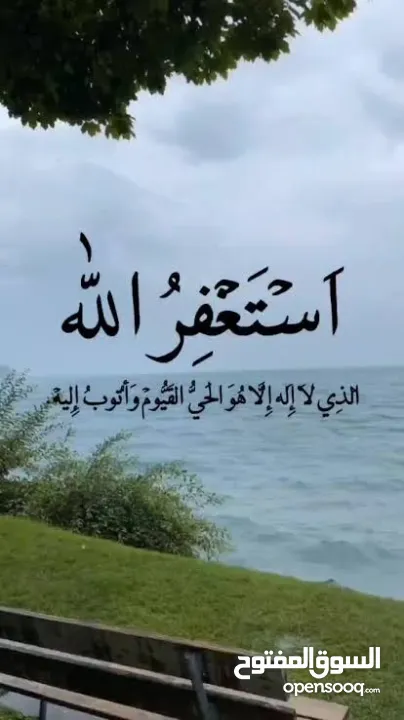 اَسْتَغْفِرُ اللّٰه
الذِي لاَ إِلَه إِلَّا هُوَ الحَيُّ القَيُّومْ وَأَتُوبُ إِلِيهْ.
السوق المفتوح
opensooq.com